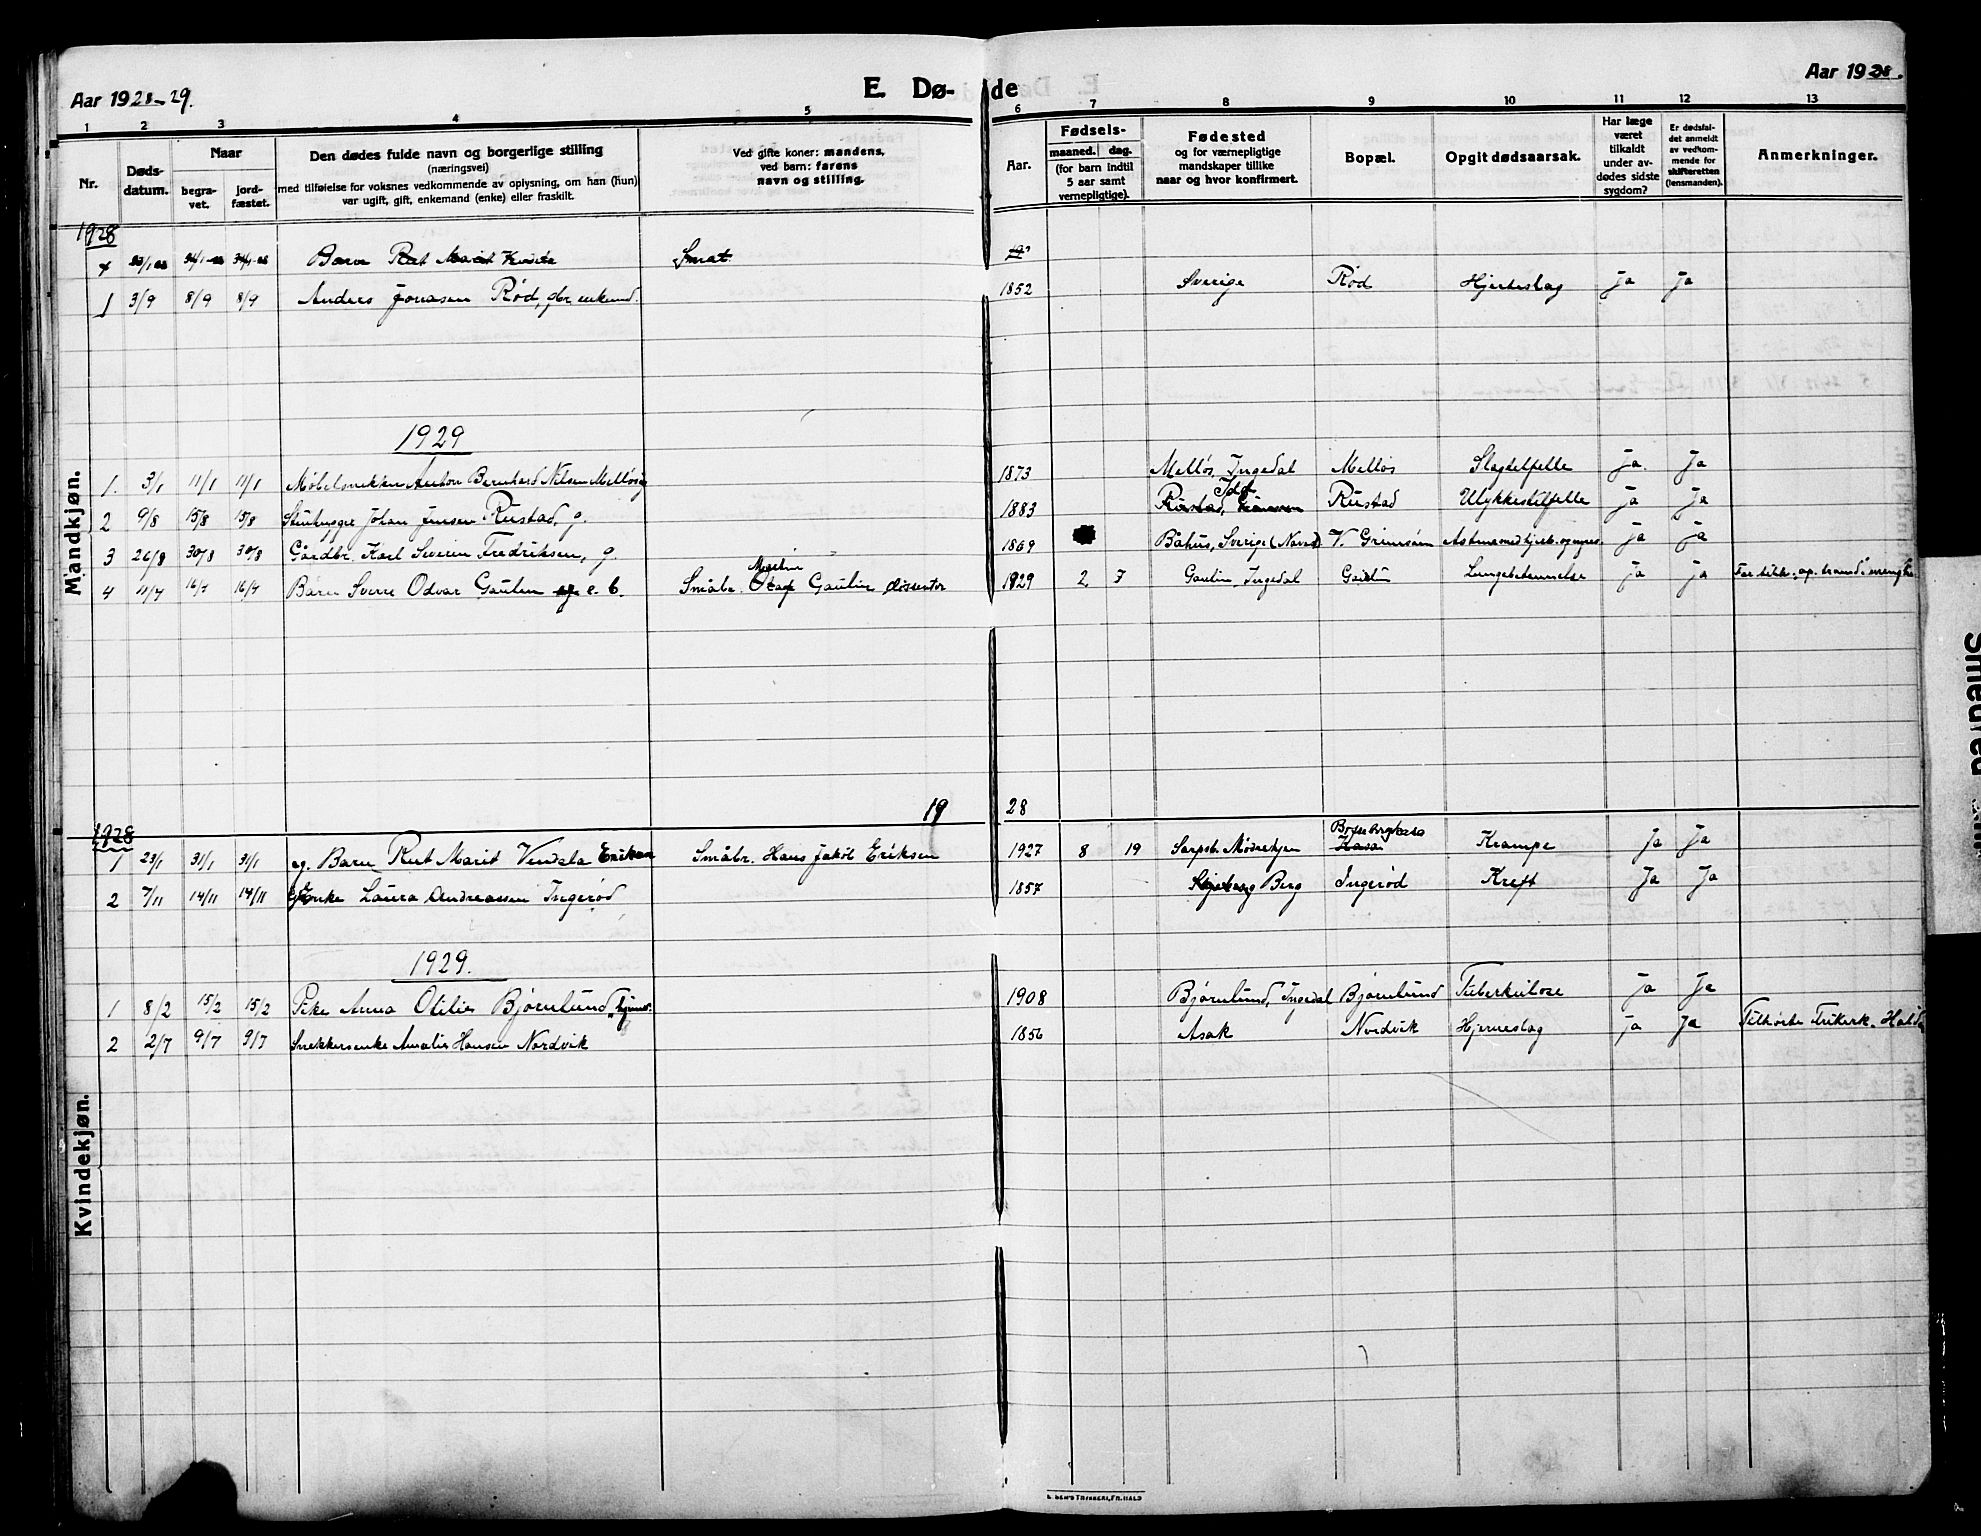 Aar 1928-29.
E. Dø- de
Aar 1928.
1 2 3 4 5 6 7 8 9 10 11 12 13
Nr.
Døds-
datum.
Naar
begra-
vet.
jord-
fæstet.
Den dødes fulde navn og borgerlige stilling
(næringsvei)
med tilføielse for voksnes vedkommende av oplysning, om han (hun)
var ugift, gift, enkemand (enke) eller fraskilt.
Ved gifte koner: mandens,
ved barn: farens
navn og stilling.
Aar.
Fødsels-
maaned. dag.
(for barn indtil
5 aar samt
vernepligtige).
Fødested
og for værnepligtige
mandskaper tillike
naar og hvor konfirmert.
Bopæl.
Opgit dødsaarsak.
Har læge
været
tilkaldt
under av-
dødes sidste
sygdom?
Er dødsfal-
det anmeldt
av vedkom-
mende for
skifteretten
(lensmanden).
Anmerkninger.
Mandkjøn.
1928
Barn Rut Marit
1 3/9 8/9 8/9 Anders Jonasen Rød, gbr. enkemd. 1852 Sverige Rød Hjerteslag Ja Ja
1929
1. 3/1 11/1 11/1 Møbelsnekker Anton Bernhard Nilsen Melløs, g 1873 Melløs, Ingedal Melløs Slagtilfelle Ja. Ja
2 9/8 15/8 15/8 Stenhugger Johan Jensen Rustad, g. 1883 Rustad, Idd Rustad Ulykkestilfelle Ja Ja
3 26/8 30/8 30/8 Gårdbr. Karl Severin Fredriksen, g. 1869 Båhus, Sverige V. Grimsøen Astma med hjerte- og nyres Ja Ja
4 11/4 16/4 16/4 Barn Sverre Odvar Gaulin e. b. Småbr. Martin Gaulin dissenter 1929 2 7 Gaulin, Ingedal Gaulin Lungebetennelse Ja Ja
19 28
Kvindekjøn.
1928
1 23/1 31/1 31/1 eg. Barn Rut Marit Eriksen Småbr. Hans Jakob Eriksen 1927 8 19 Sarpsb. Mødrehjem Krampe Ja Ja
2 7/11 14/11 14/11 Enke Laura Andreassen Ingerød 1857 Berg Ingerød Kreft Ja Ja
1929.
1 8/2 15/2 15/2 Pike Anna Otilie Bjørnlund, hjemv. 1908 Bjørnlund, Ingedal Bjørnlund Tuberkulose Ja Ja
2 2/7 9/7 9/7 Snekkersenke Amalie Hansen Nordvik 1856 Asak Nordvik Hjerneslag Ja Ja Tilhørte Frikirk. Halden